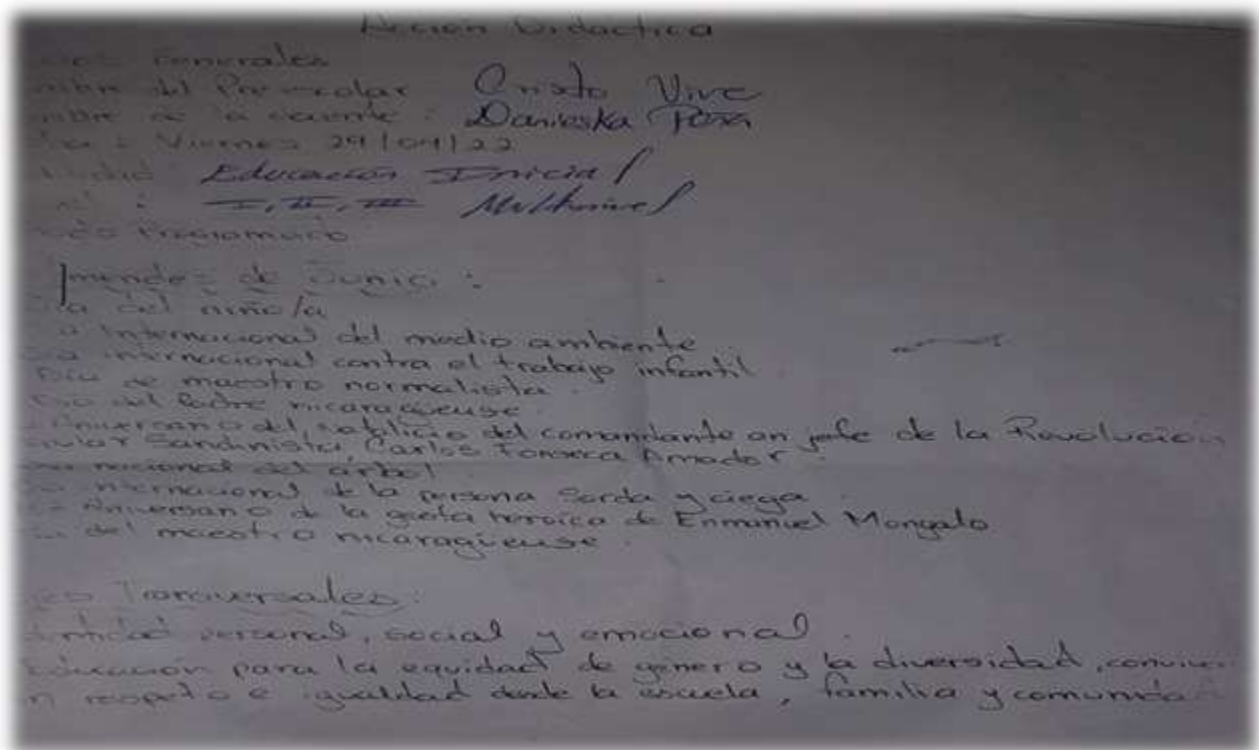 Acción Didactica
Generales
del Preescolar Cristo Vive
de la docente : Danieska
: Viernes 29/04/22
Educación Inicial
: I, II, III Multinivel
de Junio :
del niño/a
Internacional del medio ambiente
internacional contra el trabajo infantil
de maestro normalista
del Padre nicaragüense
del natalicio del comandante en jefe de la Revolución
Sandinista, Carlos Fonseca Amador
nacional del árbol
internacional de la persona Sorda y ciega
Aniversario de la gesta heroica de Enmanuel Mongalo
del maestro nicaragüense
Tranversales:
personal, social y emocional
Educación para la equidad de genero y la diversidad,
respeto e igualdad desde la escuela, familia y comunidad